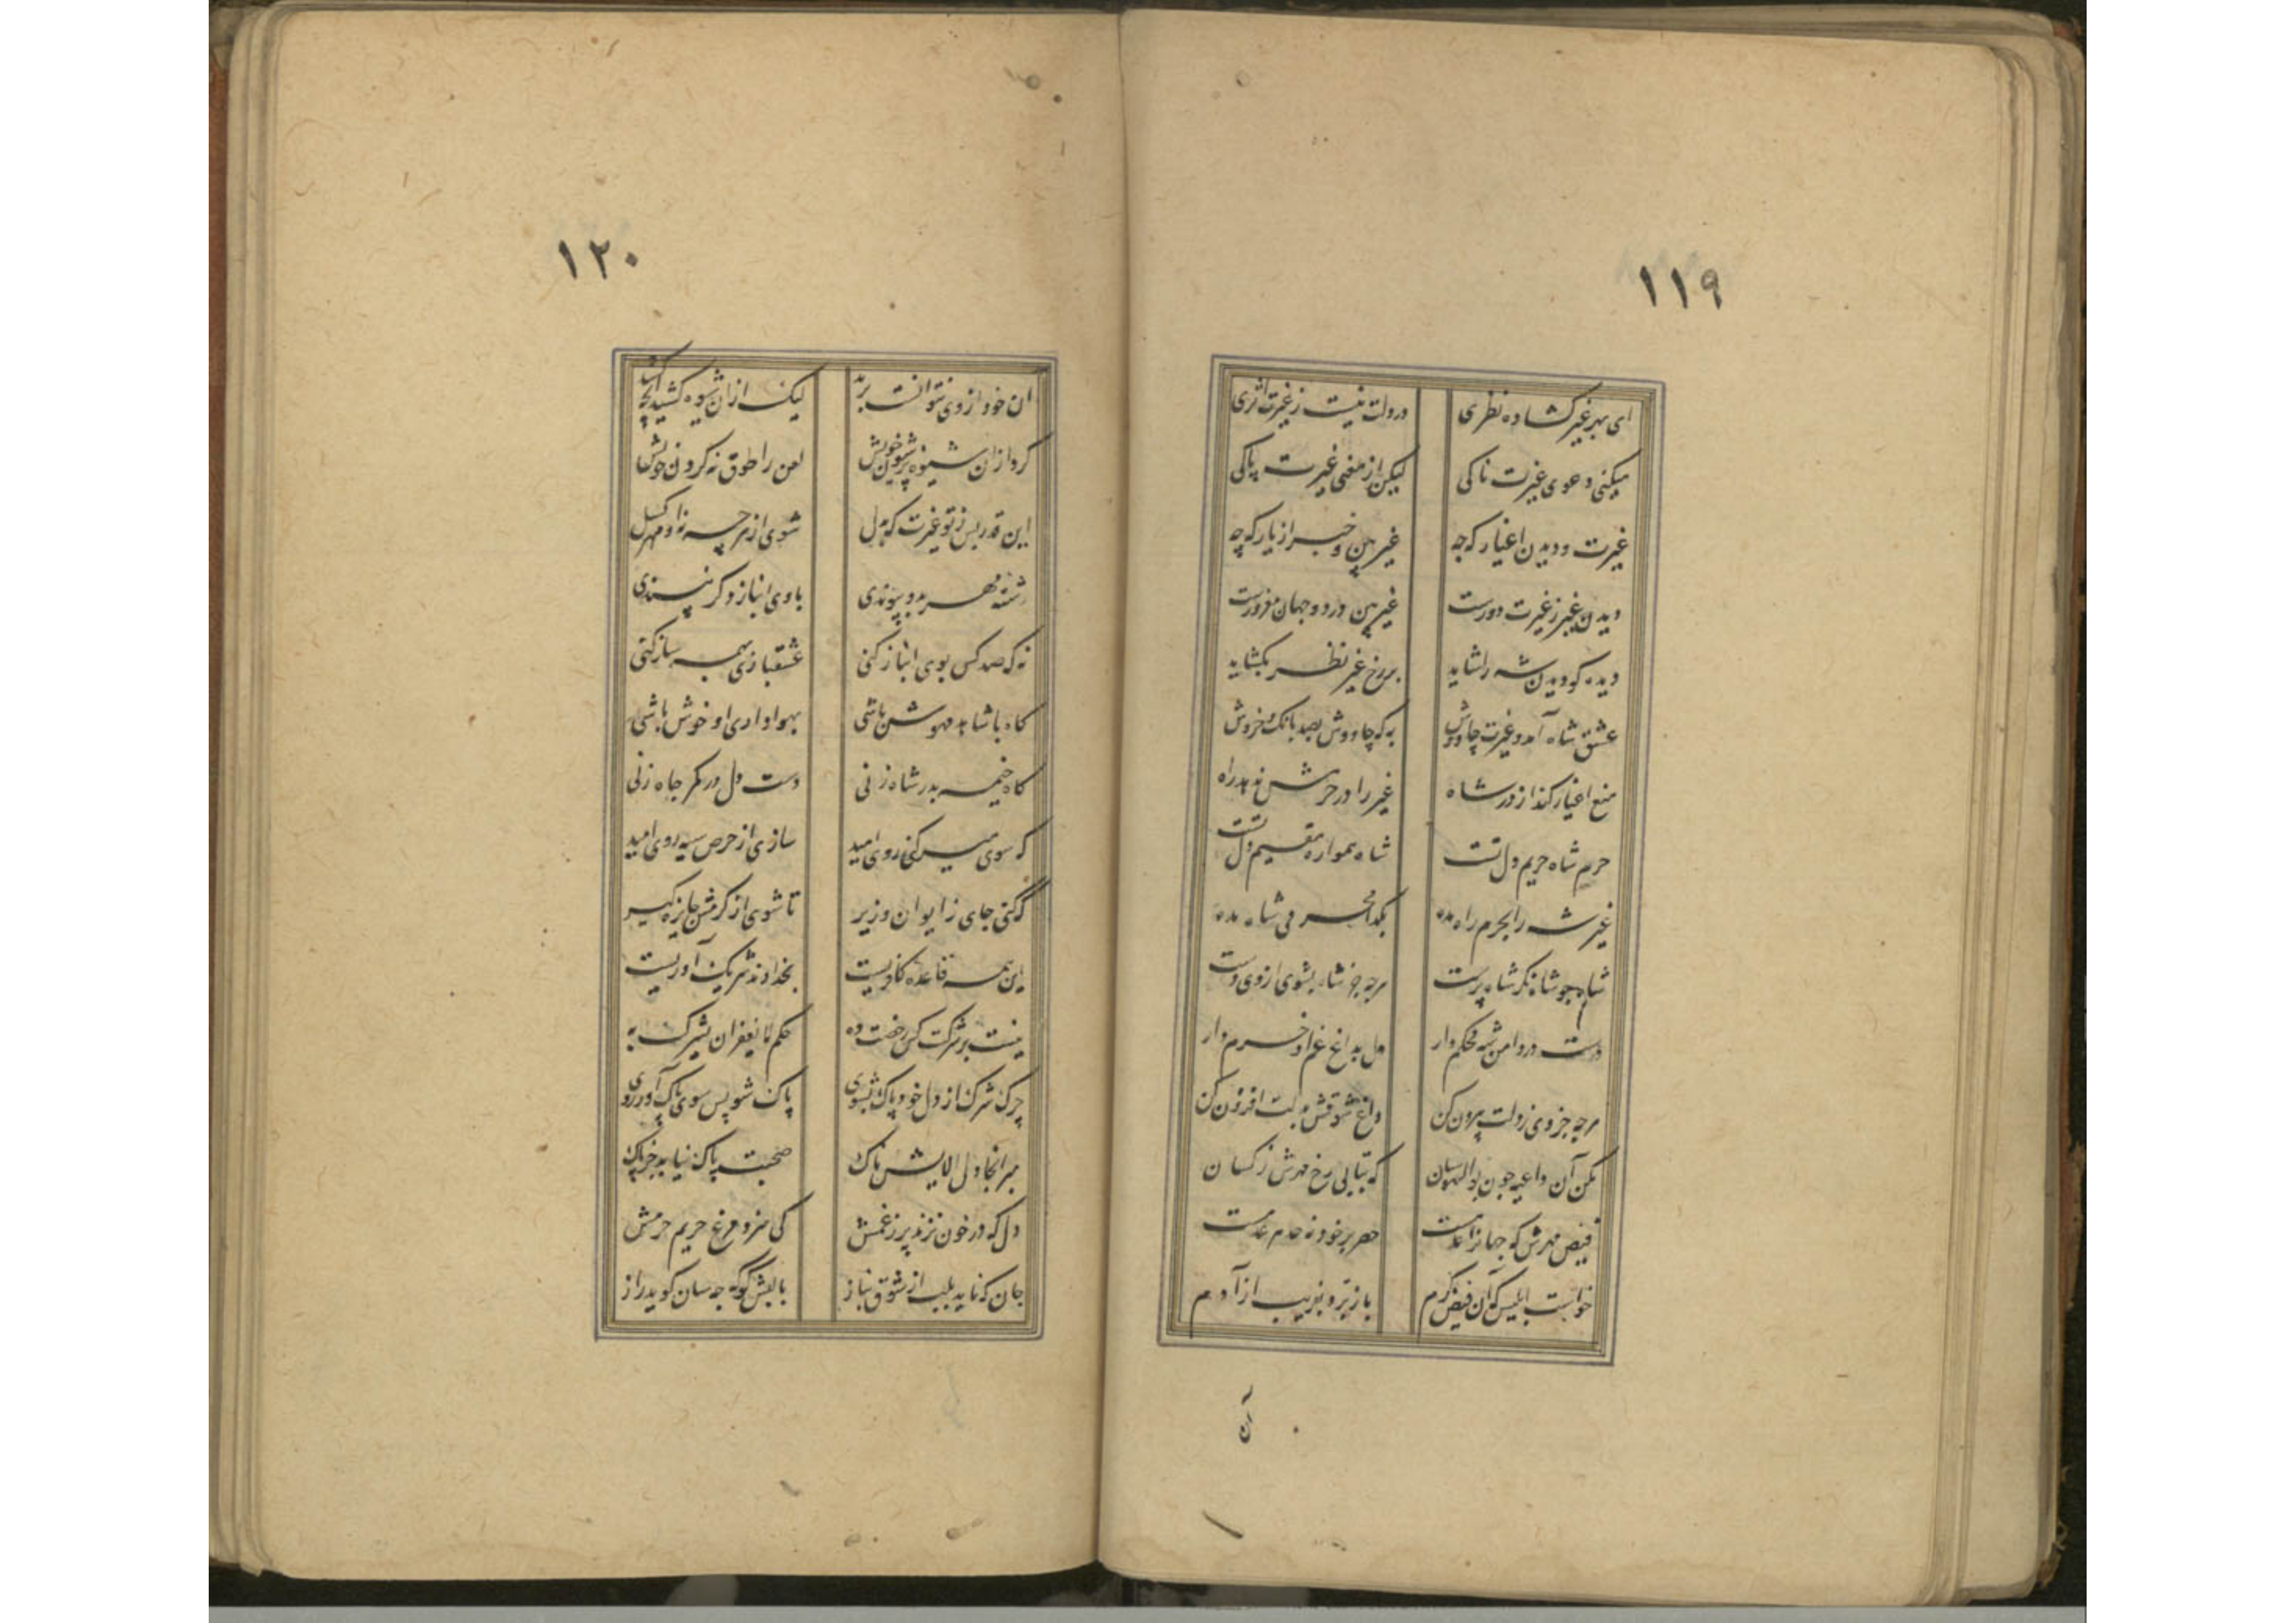 ١١٩
ای بهر غیر کشاده نظری در دلت نیست ز غیرت اثری
میکنی دعوی غیرت ناکی لیکن از معنی غیرت پاکی
غیرت و دیدن اغیار که چه غیر بین و خبر از یار که چه
دیدن غیر ز غیرت دورست غیر بین در دو جهان مغرورست
دیده کو دیدن شه را شاید بر رخ غیر نظر بکشاید
عشق شاه آمد و غیرت چاووش به که چاووش بصد بانک خروش
منع اغیار کند از در شاه غیر را در حرمش ندهد راه
حرم شاه حریم دل تست شاه همواره مقیم دل تست
غیر شه را بحرم راه مده بکدا محرمی شاه مده
شاه جو شاه نکر شاه پرست هرچه جز شاه بشوی از وی دست
دست در دامن شه محکم دار دل بداغ غم او خرم دار
هرچه جز وی ز دلت بیرون کن داغ شوقش بدلت افزون کن
مکن آن داعیه چون بوالهوسان که بتابی رخ مهرش ز کسان
فیض مهرش که جهانرا عامست حصر بر خود نه حد هر خامست
خواست ابلیس که آن فیض کرم باز برد بفریب از آدم
آن
١٢٠
آن خود از وی نتوانست برید لیک از آن شیوه کشید آنچه کشید
کرد از آن شیوه پر شیون خویش لعن را طوق نه کردن خویش
این قدر بس ز تو غیرت که بدل شوی از هرچه نه او مهر کسل
رشته مهر بدو پیوندی با وی انباز دکر نپسندی
نه که صد کس بوی انباز کنی عشقبازی بهمه ساز کنی
کاه با شاهد مهوش باشی بهواداری او خوش باشی
کاه خیمه بدر شاه زنی دست دل در کمر جاه زنی
که سوی میر کنی روی امید سازی از حرص سیه روی امید
که کنی جای ز ایوان وزیر تا شوی از کرمش جایزه کیر
این همه قاعده کافریست بخداوند شریک آوریست
نیست بر شرکت کس رخصت ده حکم لا یغفر ان یشرک به
چرک شرک از دل خود پاک بشوی پاک شو پس سوی پاک آور روی
مبر آنجا دل آلایش ناک صحبت پاک نیابد جز پاک
دل که در خون نزند پر ز غمش کی سزد مرغ حریم حرمش
جان که ناید بلب از شوق نیاز با لبش کو که چه سان کوید راز